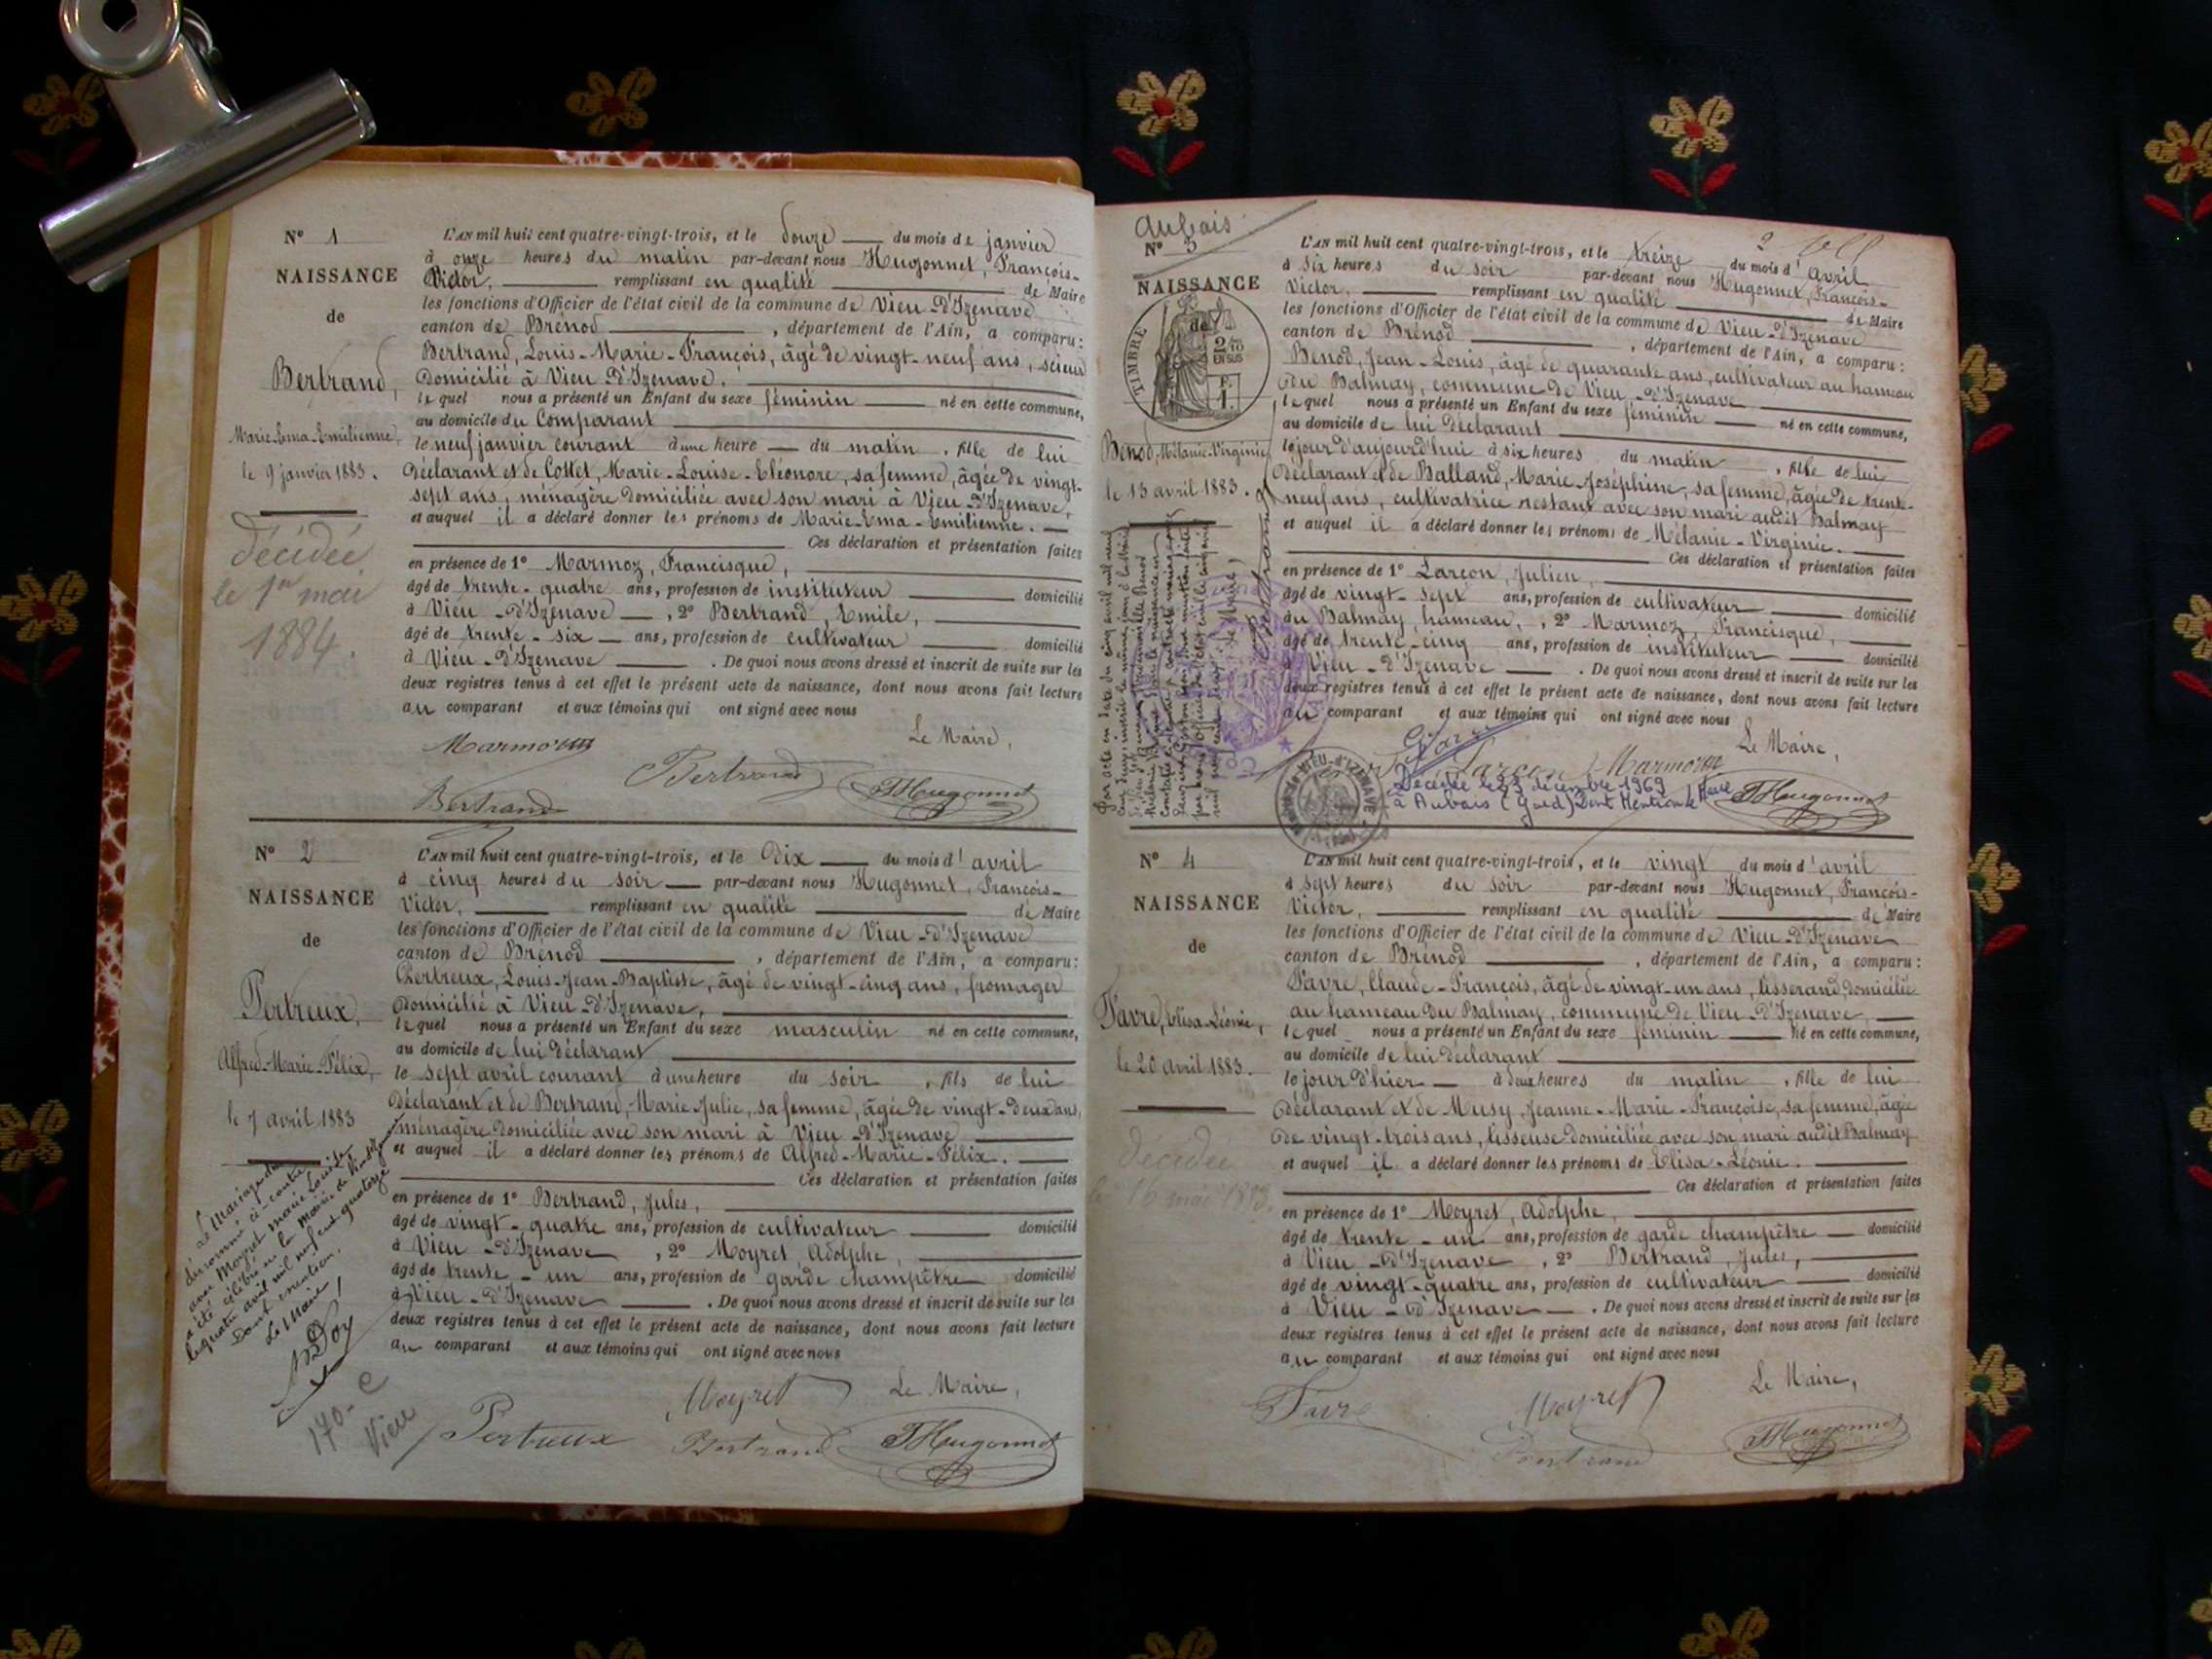 N° 1
NAISSANCE
de
Bertrand,
Marie-Ema-Emilienne,
le 9 janvier 1883.
décédée
le 1er mai
1884.
L'AN mil huit cent quatre-vingt-trois, et le douze du mois de janvier
à onze heures du matin par-devant nous Hugonnet, François-
Victor, remplissant en qualité de Maire
les fonctions d'Officier de l'état civil de la commune de Vieu-d'Izenave
canton de Brénod, département de l'Ain, a comparu:
Bertrand, Louis-Marie-François, âgé de vingt-neuf ans, scieur
domicilié à Vieu-d'Izenave,
lequel nous a présenté un Enfant du sexe féminin né en cette commune,
au domicile du Comparant
le neuf janvier courant à une heure du matin, fille de lui
déclarant et de Collet, Marie-Louise-Eléonore, sa femme, âgée de vingt-
sept ans, ménagère domiciliée avec son mari à Vieu-d'Izenave,
et auquel il a déclaré donner les prénoms de Marie-Ema-Emilienne.
Ces déclaration et présentation faites
en présence de 1° Marmoz, Francisque,
âgé de trente-quatre ans, profession de instituteur domicilié
à Vieu-d'Izenave, 2° Bertrand, Emile,
âgé de trente-six ans, profession de cultivateur domicilié
à Vieu-d'Izenave. De quoi nous avons dressé et inscrit de suite sur les
deux registres tenus à cet effet le présent acte de naissance, dont nous avons fait lecture
au comparant et aux témoins qui ont signé avec nous
Le Maire,
Marmoz
Bertrand
Bertrand
Hugonnet
N° 2
NAISSANCE
de
Pertreux,
Alfred-Marie-Félix,
le 7 avril 1883
Le Mariage du
dénommé ci-contre
avec Moyret Marie Louise
a été célébré en la Mairie de
le quatre avril mil neuf cent quatorze
Dont mention,
Le Maire,
170-C
Vieu
L'AN mil huit cent quatre-vingt-trois, et le dix du mois d'avril
à cinq heures du soir par-devant nous Hugonnet, François-
Victor, remplissant en qualité de Maire
les fonctions d'Officier de l'état civil de la commune de Vieu-d'Izenave
canton de Brénod, département de l'Ain, a comparu:
Pertreux, Louis-Jean-Baptiste, âgé de vingt-cinq ans, fromager
domicilié à Vieu-d'Izenave,
lequel nous a présenté un Enfant du sexe masculin né en cette commune,
au domicile de lui déclarant
le sept avril courant à une heure du soir, fils de lui
déclarant et de Bertrand, Marie Julie, sa femme, âgée de vingt-deux ans,
ménagère domiciliée avec son mari à Vieu-d'Izenave
et auquel il a déclaré donner les prénoms de Alfred-Marie-Félix.
Ces déclaration et présentation faites
en présence de 1° Bertrand, Jules,
âgé de vingt-quatre ans, profession de cultivateur domicilié
à Vieu-d'Izenave, 2° Moyret, Adolphe,
âgé de trente-un ans, profession de garde champêtre domicilié
à Vieu-d'Izenave. De quoi nous avons dressé et inscrit de suite sur les
deux registres tenus à cet effet le présent acte de naissance, dont nous avons fait lecture
au comparant et aux témoins qui ont signé avec nous
Le Maire,
Pertreux
Moyret
Bertrand
Hugonnet
Aubais
N° 3
NAISSANCE
de
TIMBRE
2/10
EN SUS
F.
1.
Benod, Mélanie-Virginie
le 13 avril 1883.
L'AN mil huit cent quatre-vingt-trois, et le treize du mois d'avril
à six heures du soir par-devant nous Hugonnet, François-
Victor, remplissant en qualité de Maire
les fonctions d'Officier de l'état civil de la commune de Vieu-d'Izenave
canton de Brénod, département de l'Ain, a comparu:
Benod, Jean-Louis, âgé de quarante ans, cultivateur au hameau
du Balmay, commune de Vieu-d'Izenave
lequel nous a présenté un Enfant du sexe féminin né en cette commune,
au domicile de lui déclarant
le jour d'aujourd'hui à six heures du matin, fille de lui
déclarant et de Balland, Marie-Joséphine, sa femme, âgée de trente-
neuf ans, cultivatrice restant avec son mari audit Balmay
et auquel il a déclaré donner les prénoms de Mélanie-Virginie.
Ces déclaration et présentation faites
en présence de 1° Larçon, Julien,
âgé de vingt-sept ans, profession de cultivateur domicilié
au Balmay, hameau, 2° Marmoz, Francisque,
âgé de trente-cinq ans, profession de instituteur domicilié
à Vieu-d'Izenave. De quoi nous avons dressé et inscrit de suite sur les
deux registres tenus à cet effet le présent acte de naissance, dont nous avons fait lecture
au comparant et aux témoins qui ont signé avec nous
Le Maire,
Larçon
Marmoz
Hugonnet
VIEU-d'IZENAVE
Décédée le 23 décembre 1969
à Aubais (Gard) Dont Mention le Maire
N° 4
NAISSANCE
de
Favre, Elisa-Léonie,
le 20 avril 1883.
décédée
le 16 mai
L'AN mil huit cent quatre-vingt-trois, et le vingt du mois d'avril
à sept heures du soir par-devant nous Hugonnet, François-
Victor, remplissant en qualité de Maire
les fonctions d'Officier de l'état civil de la commune de Vieu-d'Izenave
canton de Brénod, département de l'Ain, a comparu:
Favre, Claude-François, âgé de vingt-un ans, tisserand, domicilié
au hameau du Balmay, commune de Vieu-d'Izenave,
lequel nous a présenté un Enfant du sexe féminin né en cette commune,
au domicile de lui déclarant
le jour d'hier à deux heures du matin, fille de lui
déclarant et de Musy, Jeanne-Marie-Françoise, sa femme, âgée
de vingt-trois ans, tisseuse domiciliée avec son mari audit Balmay
et auquel il a déclaré donner les prénoms de Elisa-Léonie.
Ces déclaration et présentation faites
en présence de 1° Moyret, Adolphe,
âgé de trente-un ans, profession de garde champêtre domicilié
à Vieu-d'Izenave, 2° Bertrand, Jules,
âgé de vingt-quatre ans, profession de cultivateur domicilié
à Vieu-d'Izenave. De quoi nous avons dressé et inscrit de suite sur les
deux registres tenus à cet effet le présent acte de naissance, dont nous avons fait lecture
au comparant et aux témoins qui ont signé avec nous
Le Maire,
Favre
Moyret
Bertrand
Hugonnet